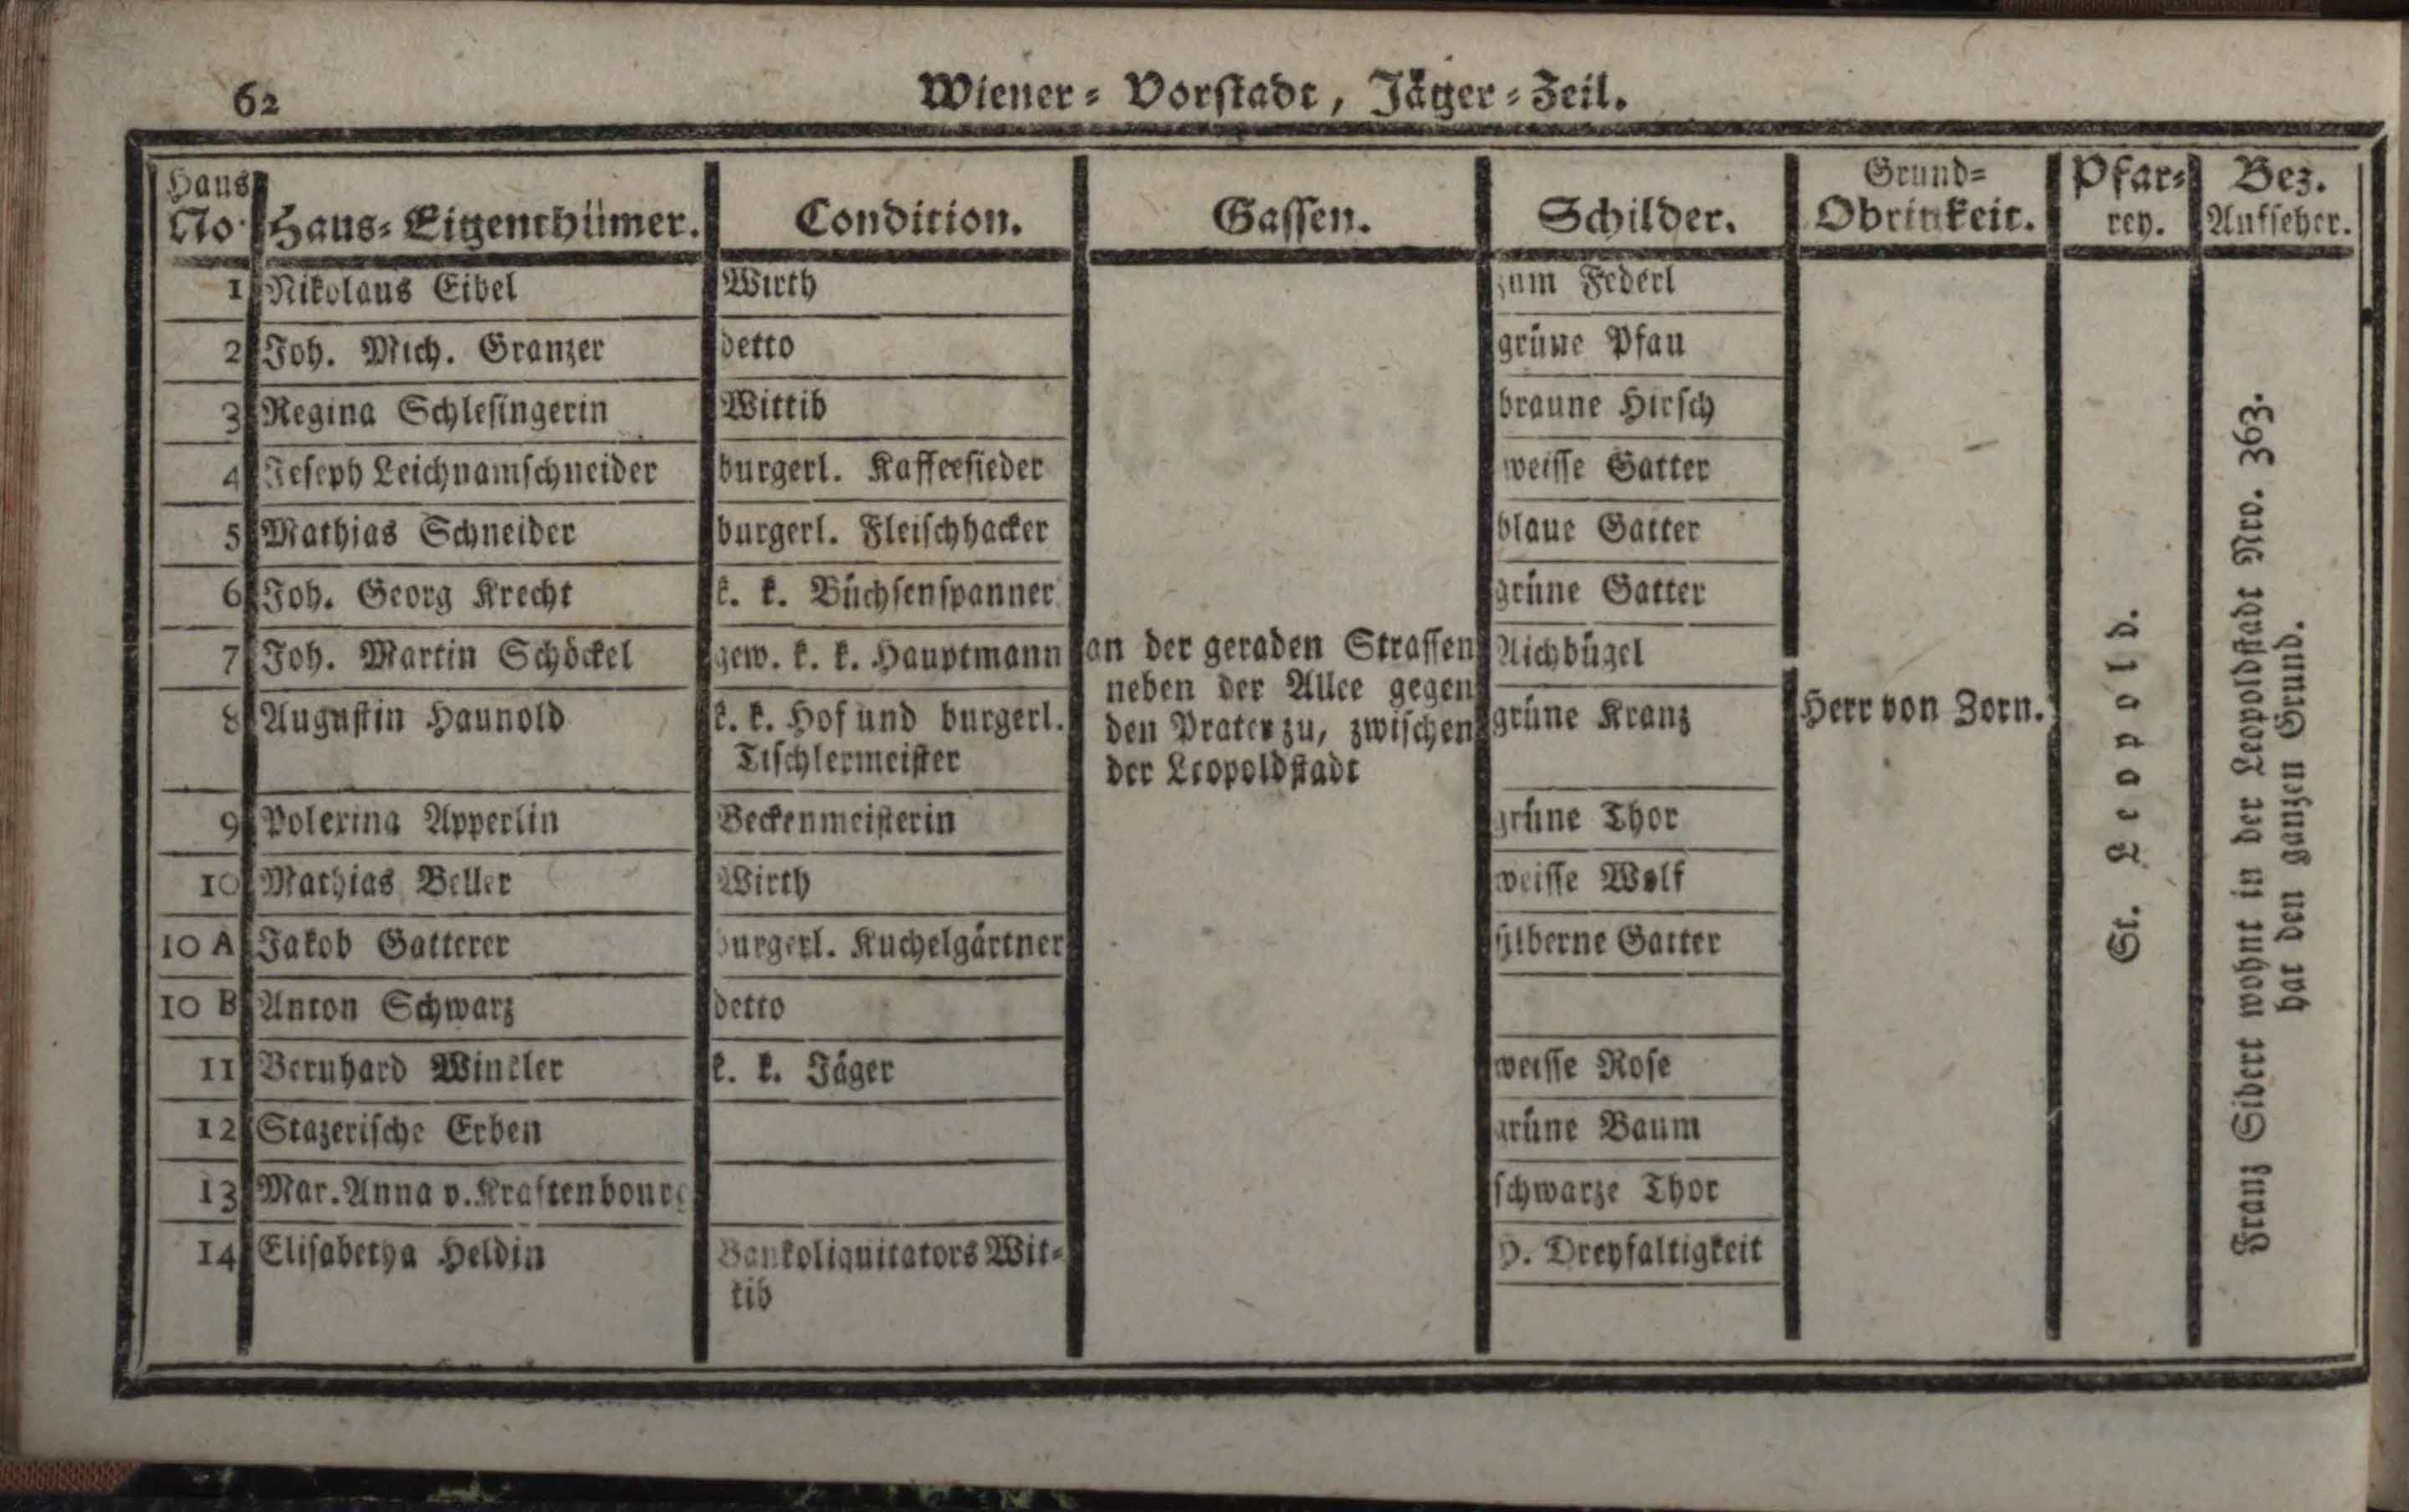 62
Wiener-Vorstadt, Jäger-Zeil.
Haus No. Haus-Eigenthümer. Condition. Gassen. Schilder. Grund-Obrigkeit. Pfar-rey. Bez. Aufseher.
1 Nikolaus Eibel Wirth zum Federl
2 Joh. Mich. Granzer detto grüne Pfau
3 Regina Schlesingerin Wittib braune Hirsch
4 Joseph Leichnamschneider burgerl. Kaffeesieder weisse Gatter
5 Mathias Schneider burgerl. Fleischhacker blaue Gatter
6 Joh. Georg Krecht k. k. Büchsenspanner grüne Gatter
7 Joh. Martin Schöckel gew. k. k. Hauptmann Aichbügel
8 Augustin Haunold k. k. Hof und burgerl. grüne Kranz
Tischlermeister
9 Polexina Apperlin Beckenmeisterin grüne Thor
10 Mathias Beller Wirth weisse Wolf
10 A Jakob Gatterer burgerl. Kuchelgärtner silberne Gatter
10 B Anton Schwarz detto
11 Bernhard Winkler k. k. Jäger weisse Rose
12 Stazerische Erben grüne Baum
13 Mar. Anna v. Kraftenbourg schwarze Thor
14 Elisabetha Heldin Bankoliquitators Wit- H. Dreyfaltigkeit
tib
an der geraden Strassen
neben der Allee gegen
den Prater zu, zwischen
der Leopoldstadt
Herr von Zorn.
St. Leopold.
Franz Sibert wohnt in der Leopoldstadt Nro. 363.
hat den ganzen Grund.